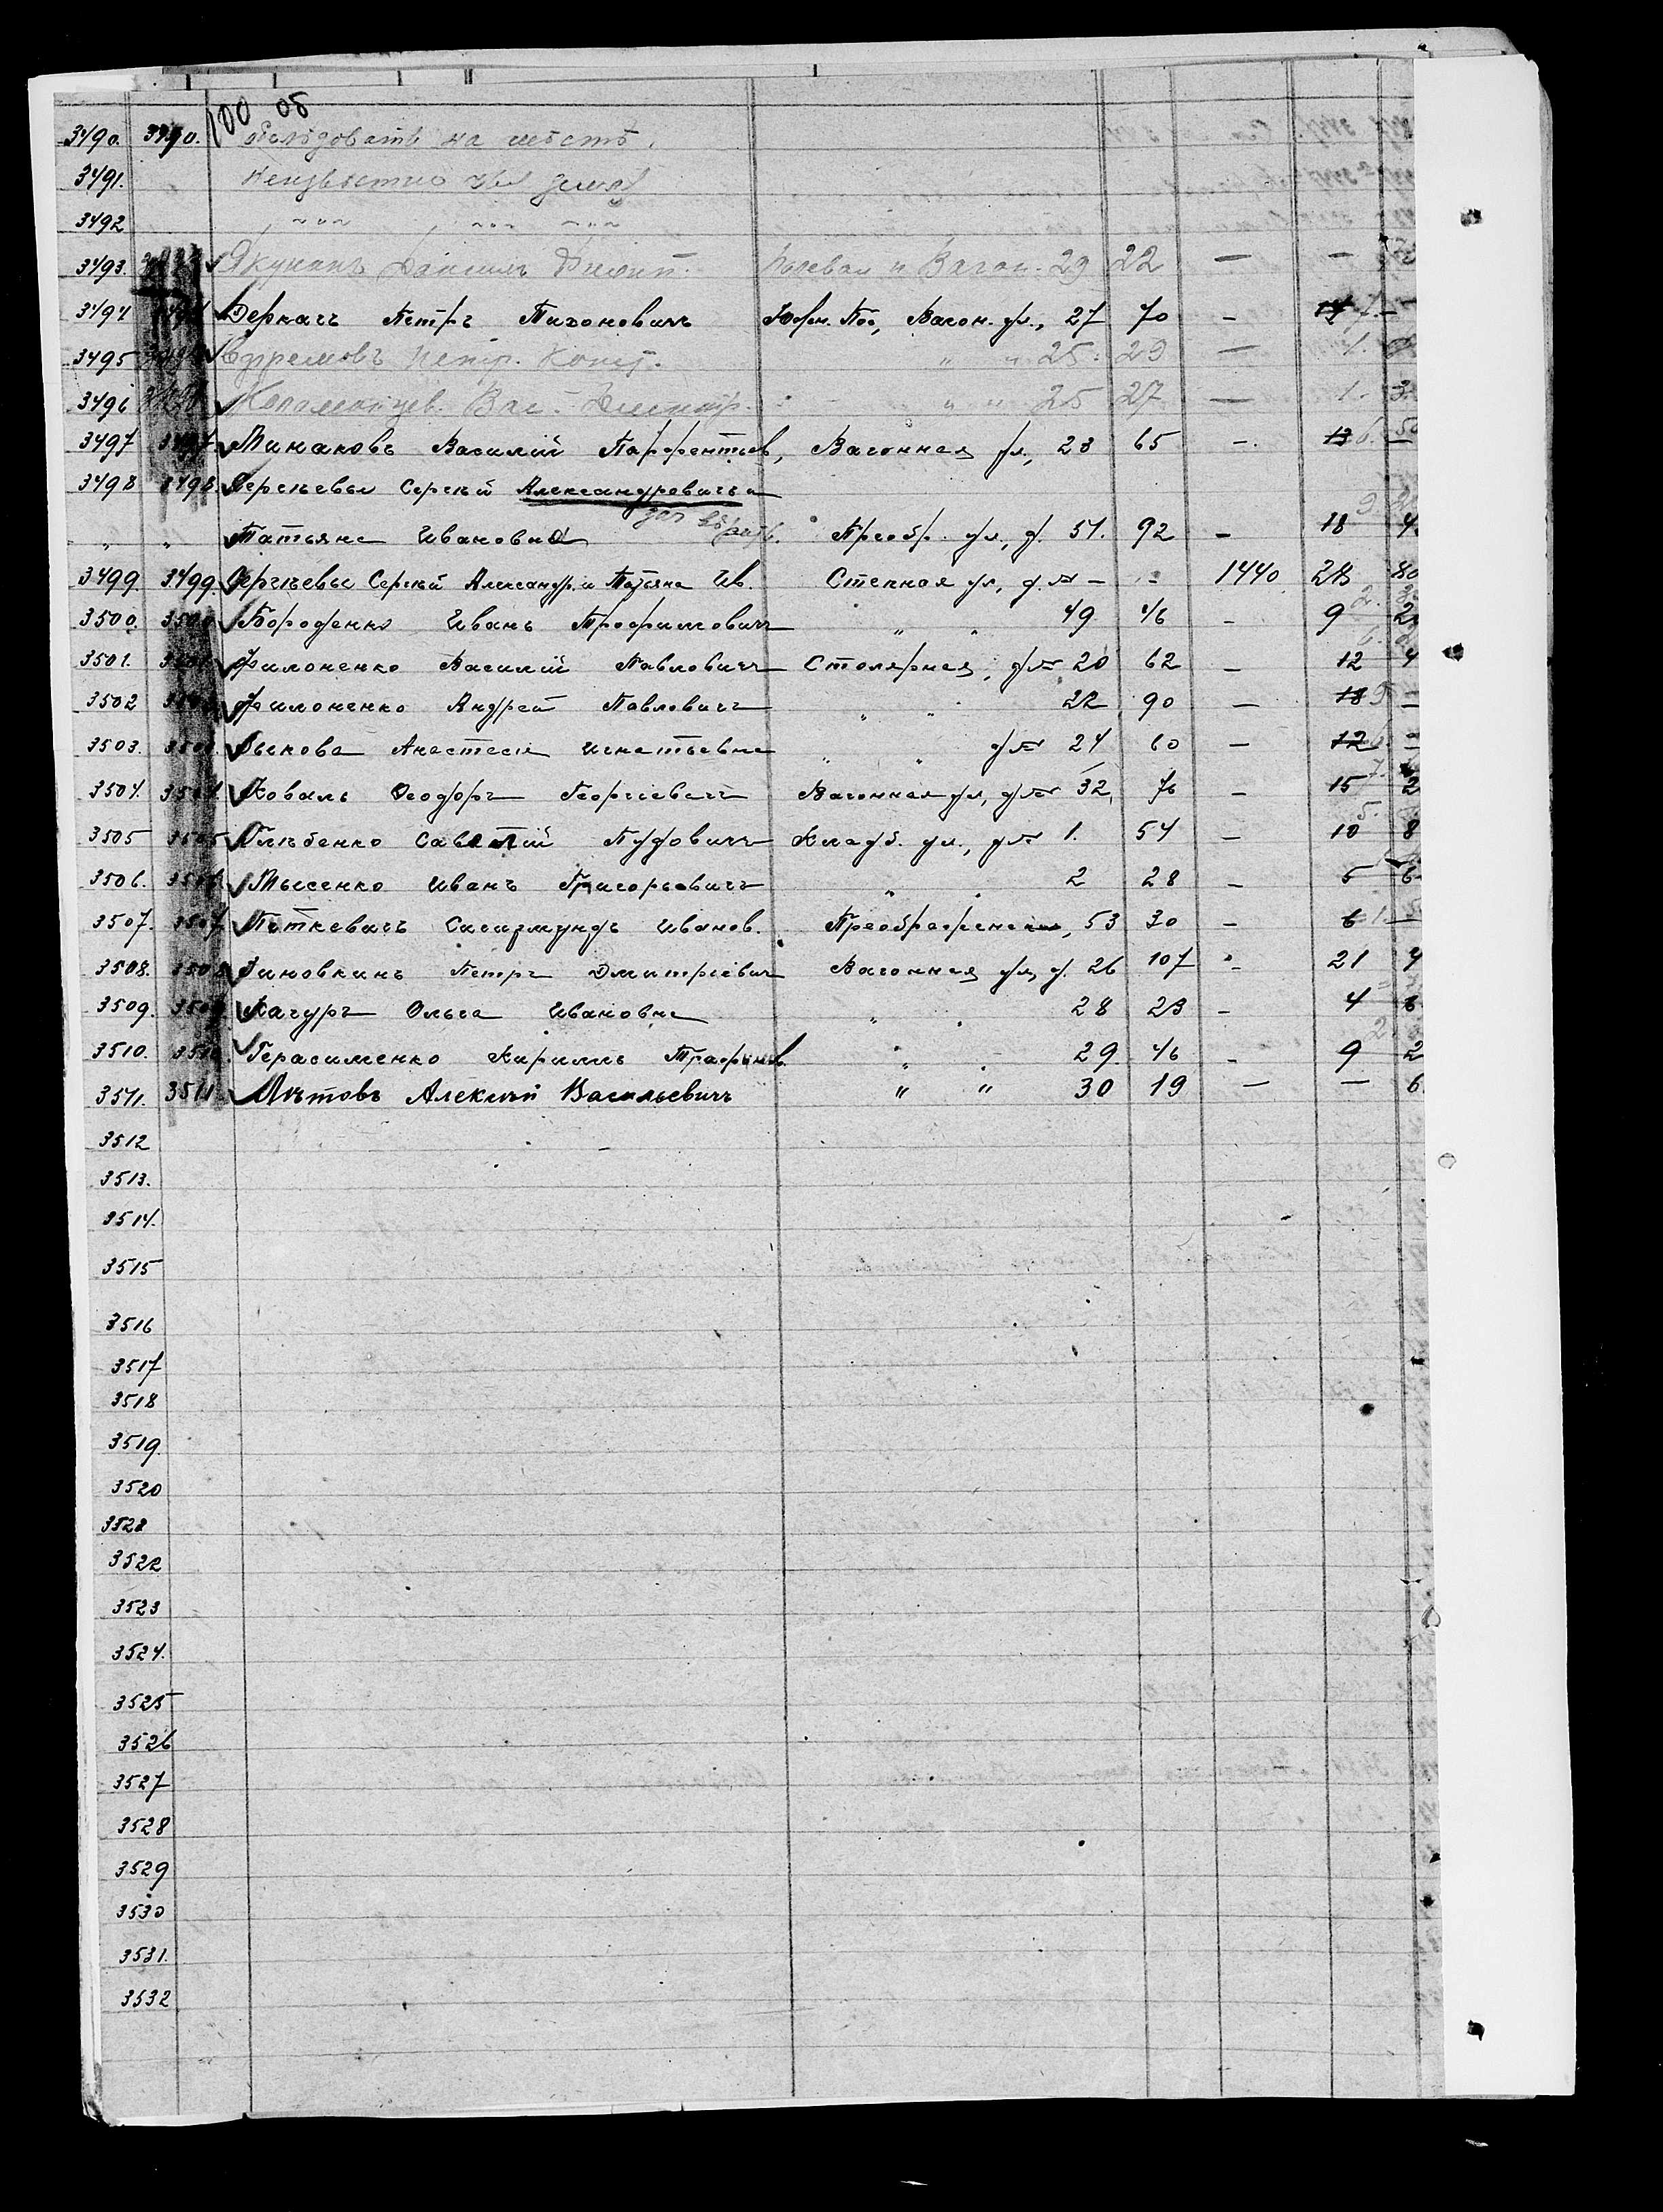 100 об
3490. 3490. обслѣдовать на мѣстѣ.
3491. Неизвѣстно чья земля
3492 " " "
3493. Якунинъ Даніилъ Вагон. 29 22 — —
3494 Деркачъ Петръ Тихоновичъ Южн. Пос., Вагон. ул., 27 70 - 14 7. -
3495 Ефремовъ Петр. Конст. " " 25. 29 — 1.
3496 Коломойцев. Вас. Дмитр. " " 25 27 — 1. 3
3497 3497. Минаковъ Василій Парфентьев, Вагонная ул., 23 65 -. 13 6. 50
3498 3498. Сергѣевы Сергѣй Александровичъ и
" " Татьяна Ивановна Преобр. ул., д. 51. 92 - 18 4
3499. 3499. Сергѣевы Сергѣй Александр. и Татьяна Ив. Степная ул., д. № - - 1440 28 80
3500. 3500 Бороденко Иванъ Трофимовичъ " " 49 46 - 9 2
3501. 3501 Филоненко Василій Павловичъ Столярная, д. № 20 62 - 12 4
3502 3502 Филоненко Андрей Павловичъ " " 22 90 — 18 9 —
3503. 3503 Быкова Анастасія Игнатьевна " " д № 24 60 — 12 6. —
3504. 3504. Коваль Ѳеодоръ Георгіевичъ Вагонная ул., д № 32, 76 - 15 2
3505 3505 Глѣбенко Савелій Пудовичъ Кладб. ул., д № 1. 54 - 10 8
3506. 3506 Мысенко Иванъ Григорьевичъ " " 2 28 - 5 6
3507. 3507 Петкевичъ Сигизмундъ Иванов. Преображенская, 53 30 - 6 1. —
3508. 3508 Зиновкинъ Петръ Дмитріевичъ Вагонная ул., д. 26 107 - 21 4
3509. 3509 Качуръ Ольга Ивановна " " 28 23 - 4 6
3510. 3510 Герасименко Кириллъ Трофимов. " " 29 46 - 9 2
3511. 3511 Лѣтовъ Алексѣй Васильевичъ " " 30 19 — — 6
3512
3513.
3514.
3515
3516
3517
3518
3519.
3520
3521
3522
3523
3524.
3525
3526
3527
3528
3529
3530
3531.
3532